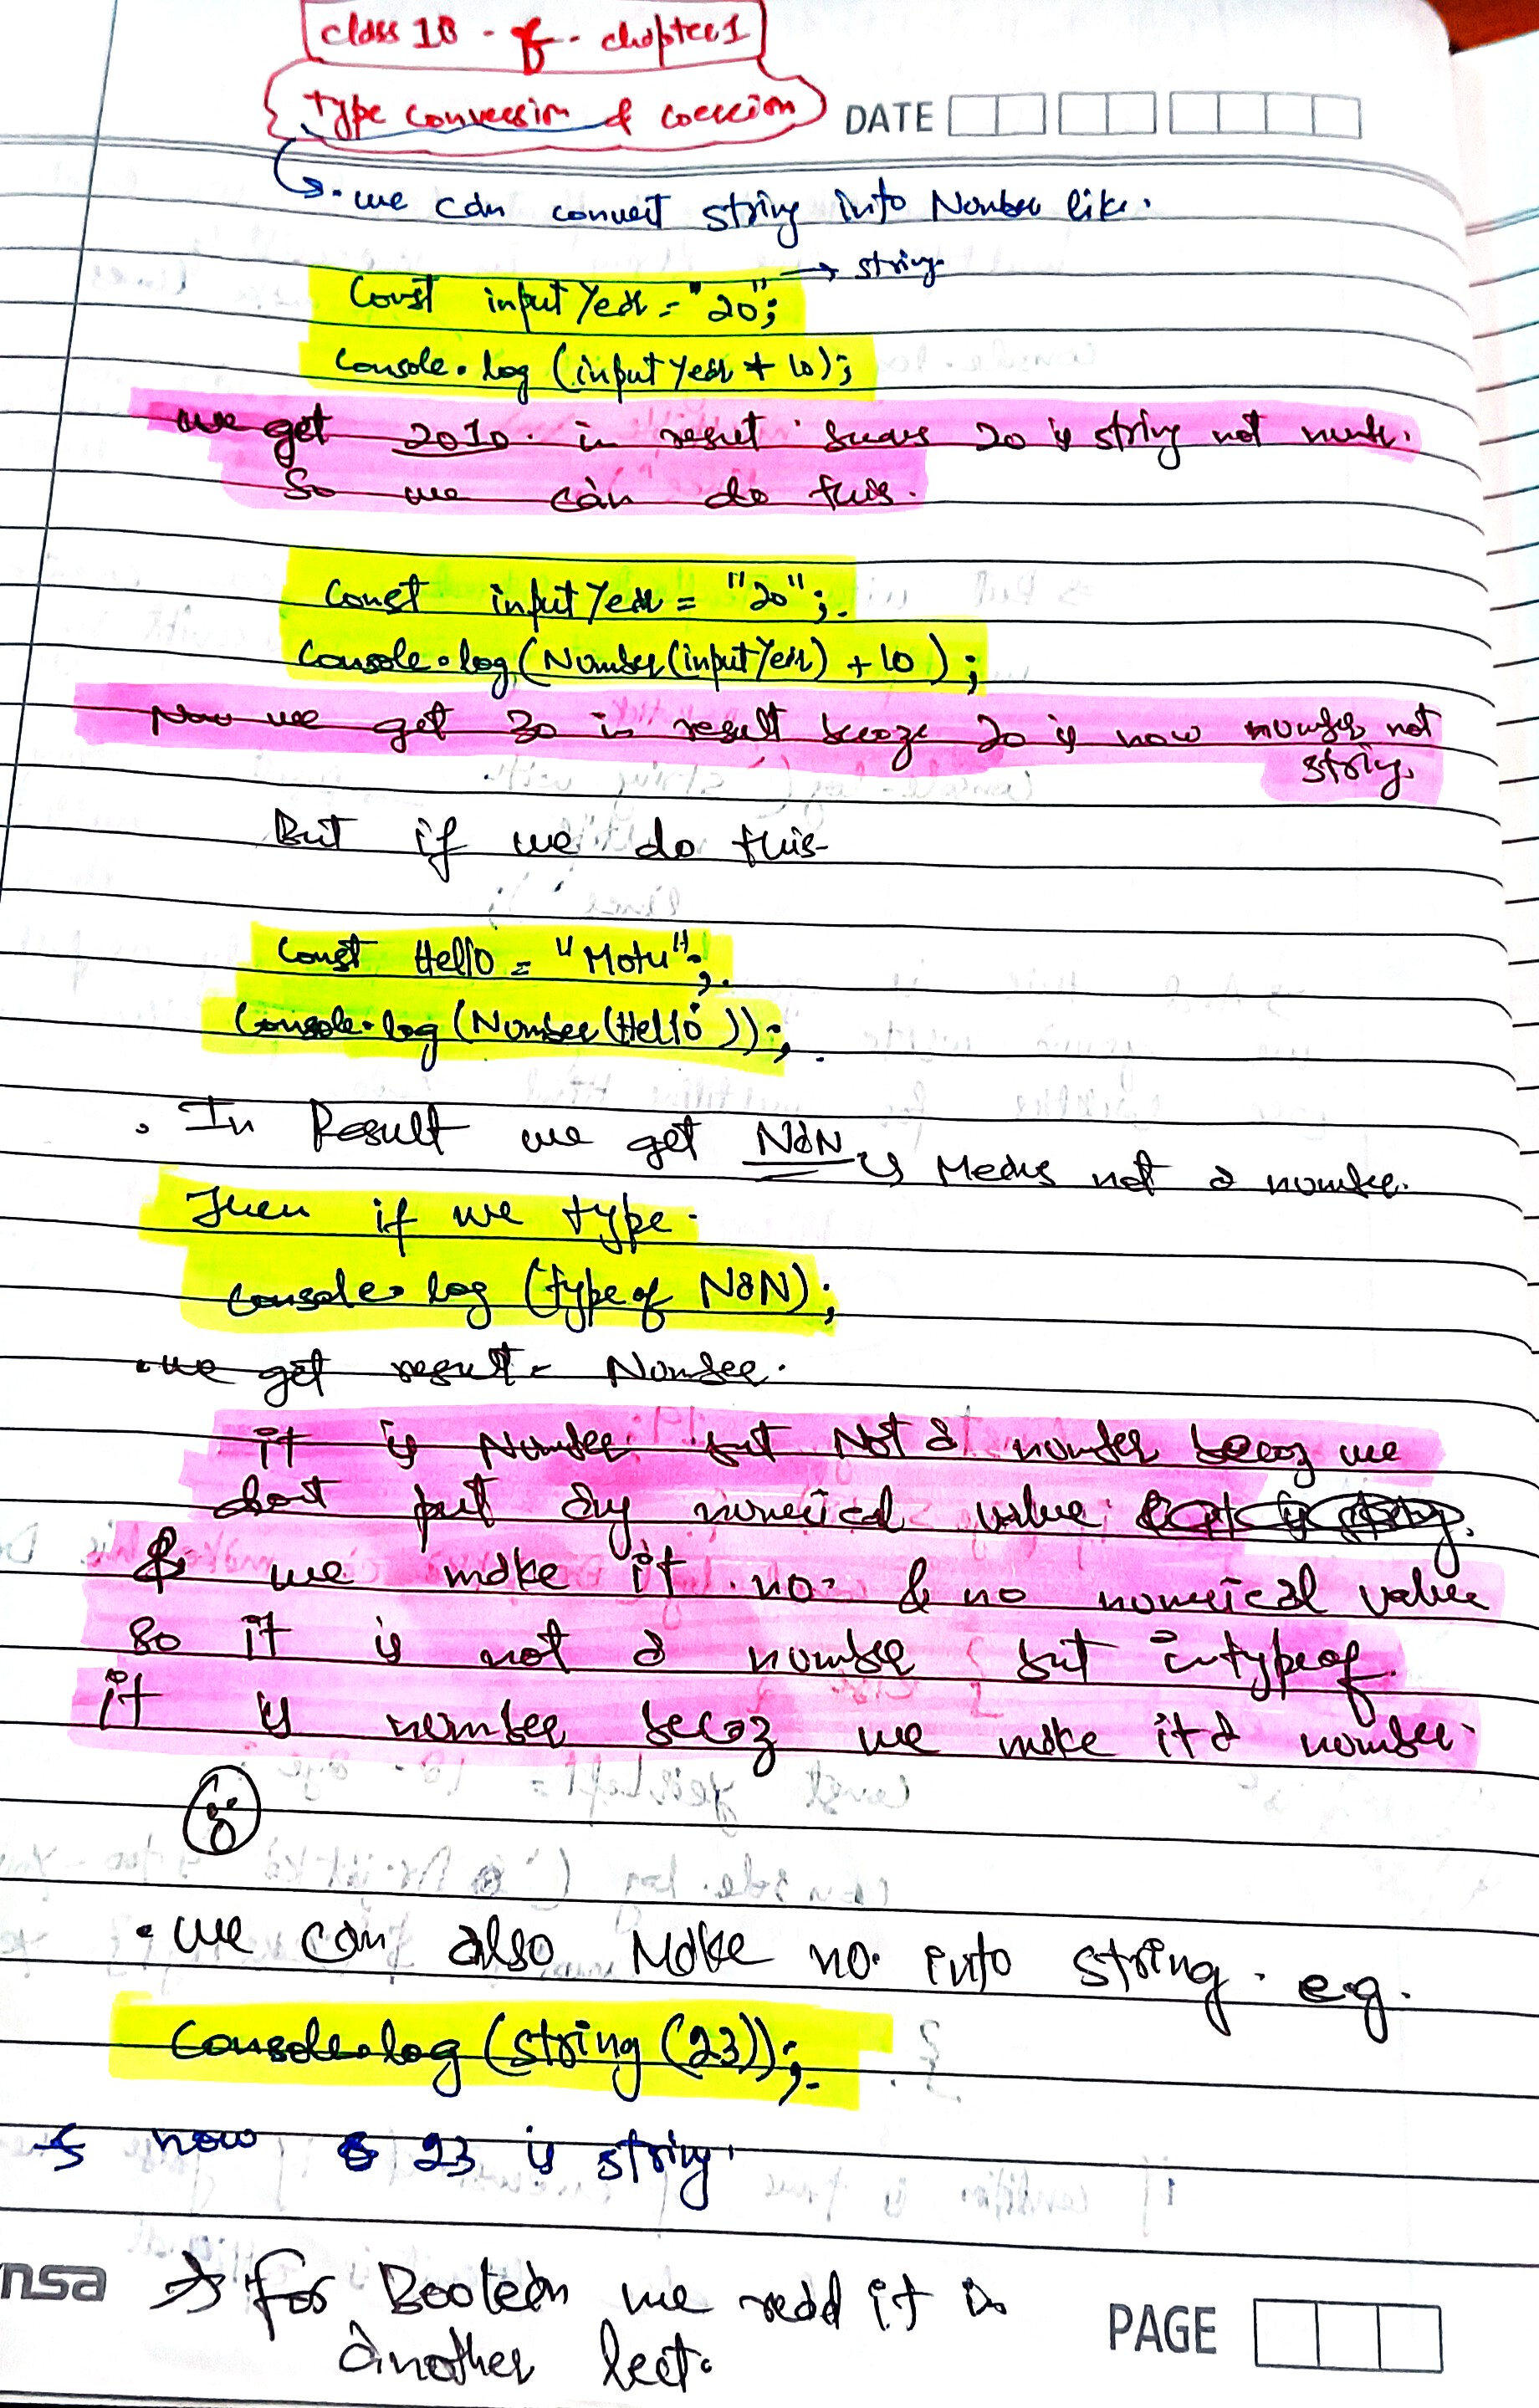 class 18 - f - chapter 1
Type conversion & coercion
DATE
→ • we can convert string into Number like.
Const inputYear = "20"; → string
Console.log (inputYear + 10);
we get 2010 in result 20 is string not
So we can do this.
Const inputYear = "20";
Console.log (Number(inputYear) + 10);
Now we get 30 in result becoze 20 is now number not
string.
But if we do this-
Const Hello = "Motu";
Console.log (Number(Hello));
• In Result we get NaN Means not a number.
Then if we type.
Console.log (typeof NaN);
• we get result = Number.
it is Number but Not a number becoz we
dont put any numerical value
& we make it no. & no numerical value
so it is not a number but in typeof
it is number becoz we make it a number.
• we can also Make no. into string. eg.
Console.log (string (23));
now 23 is string.
nsa → for Boolean we read it in
another lect.
PAGE